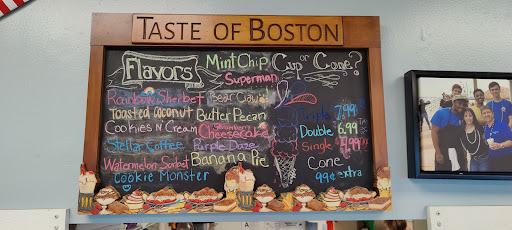 TASTE OF BOSTON
Flavors
Mint Chip
Superman
Rainbow Sherbet
Bear Claw
Toasted Coconut
Butter Pecan
Cookies N Cream
Strawberry
Cheesecake
Stellar Coffee
Purple Daze
Watermelon Sorbet
Banana Pie
Cookie Monster
Cup or Cone?
Triple 7.99
Double 6.99
Single 4.99
Cone
99¢ extra